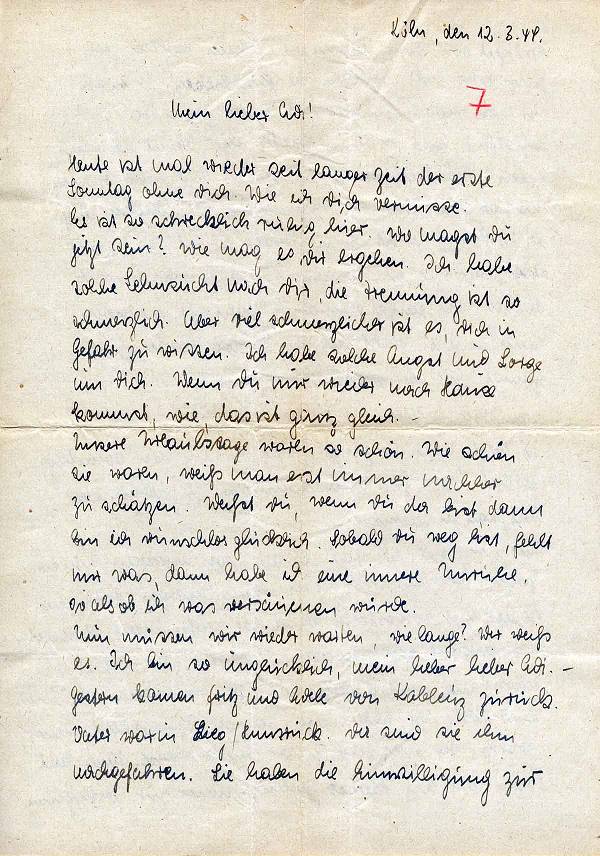 Köln, den 12.3.44.
7
Mein lieber Adi!
Heute ist mal wieder seit langer Zeit der erste
Sonntag ohne dich. Wie ich dich vermisse.
Es ist so schrecklich ruhig hier. Wo magst du
jetzt sein? Wie mag es dir ergehen. Ich habe
solche Sehnsucht nach dir, die Trennung ist so
schmerzlich. Aber viel schmerzlicher ist es, dich in
Gefahr zu wissen. Ich habe solche Angst und Sorge
um dich. Wenn du nur wieder nach Hause
kommst, wie, das ist ganz gleich. –
Unsere Urlaubstage waren so schön. Wie schön
sie waren, weiß man erst immer nachher
zu schätzen. Weißt du, wenn du da bist dann
bin ich wunschlos glücklich. Sobald du weg bist, fehlt
mir was, dann habe ich eine innere Unruhe,
so als ob ich was versäumen würde.
Nun müssen wir wieder warten, wie lange? Wer weiß
es. Ich bin so unglücklich, mein lieber lieber Adi. –
Gestern kamen Fritz und Adele von Koblenz zurück.
Vater war in Lieg/Hunsrück. Da sind sie ihm
nachgefahren. Sie haben die Einwilligung zur